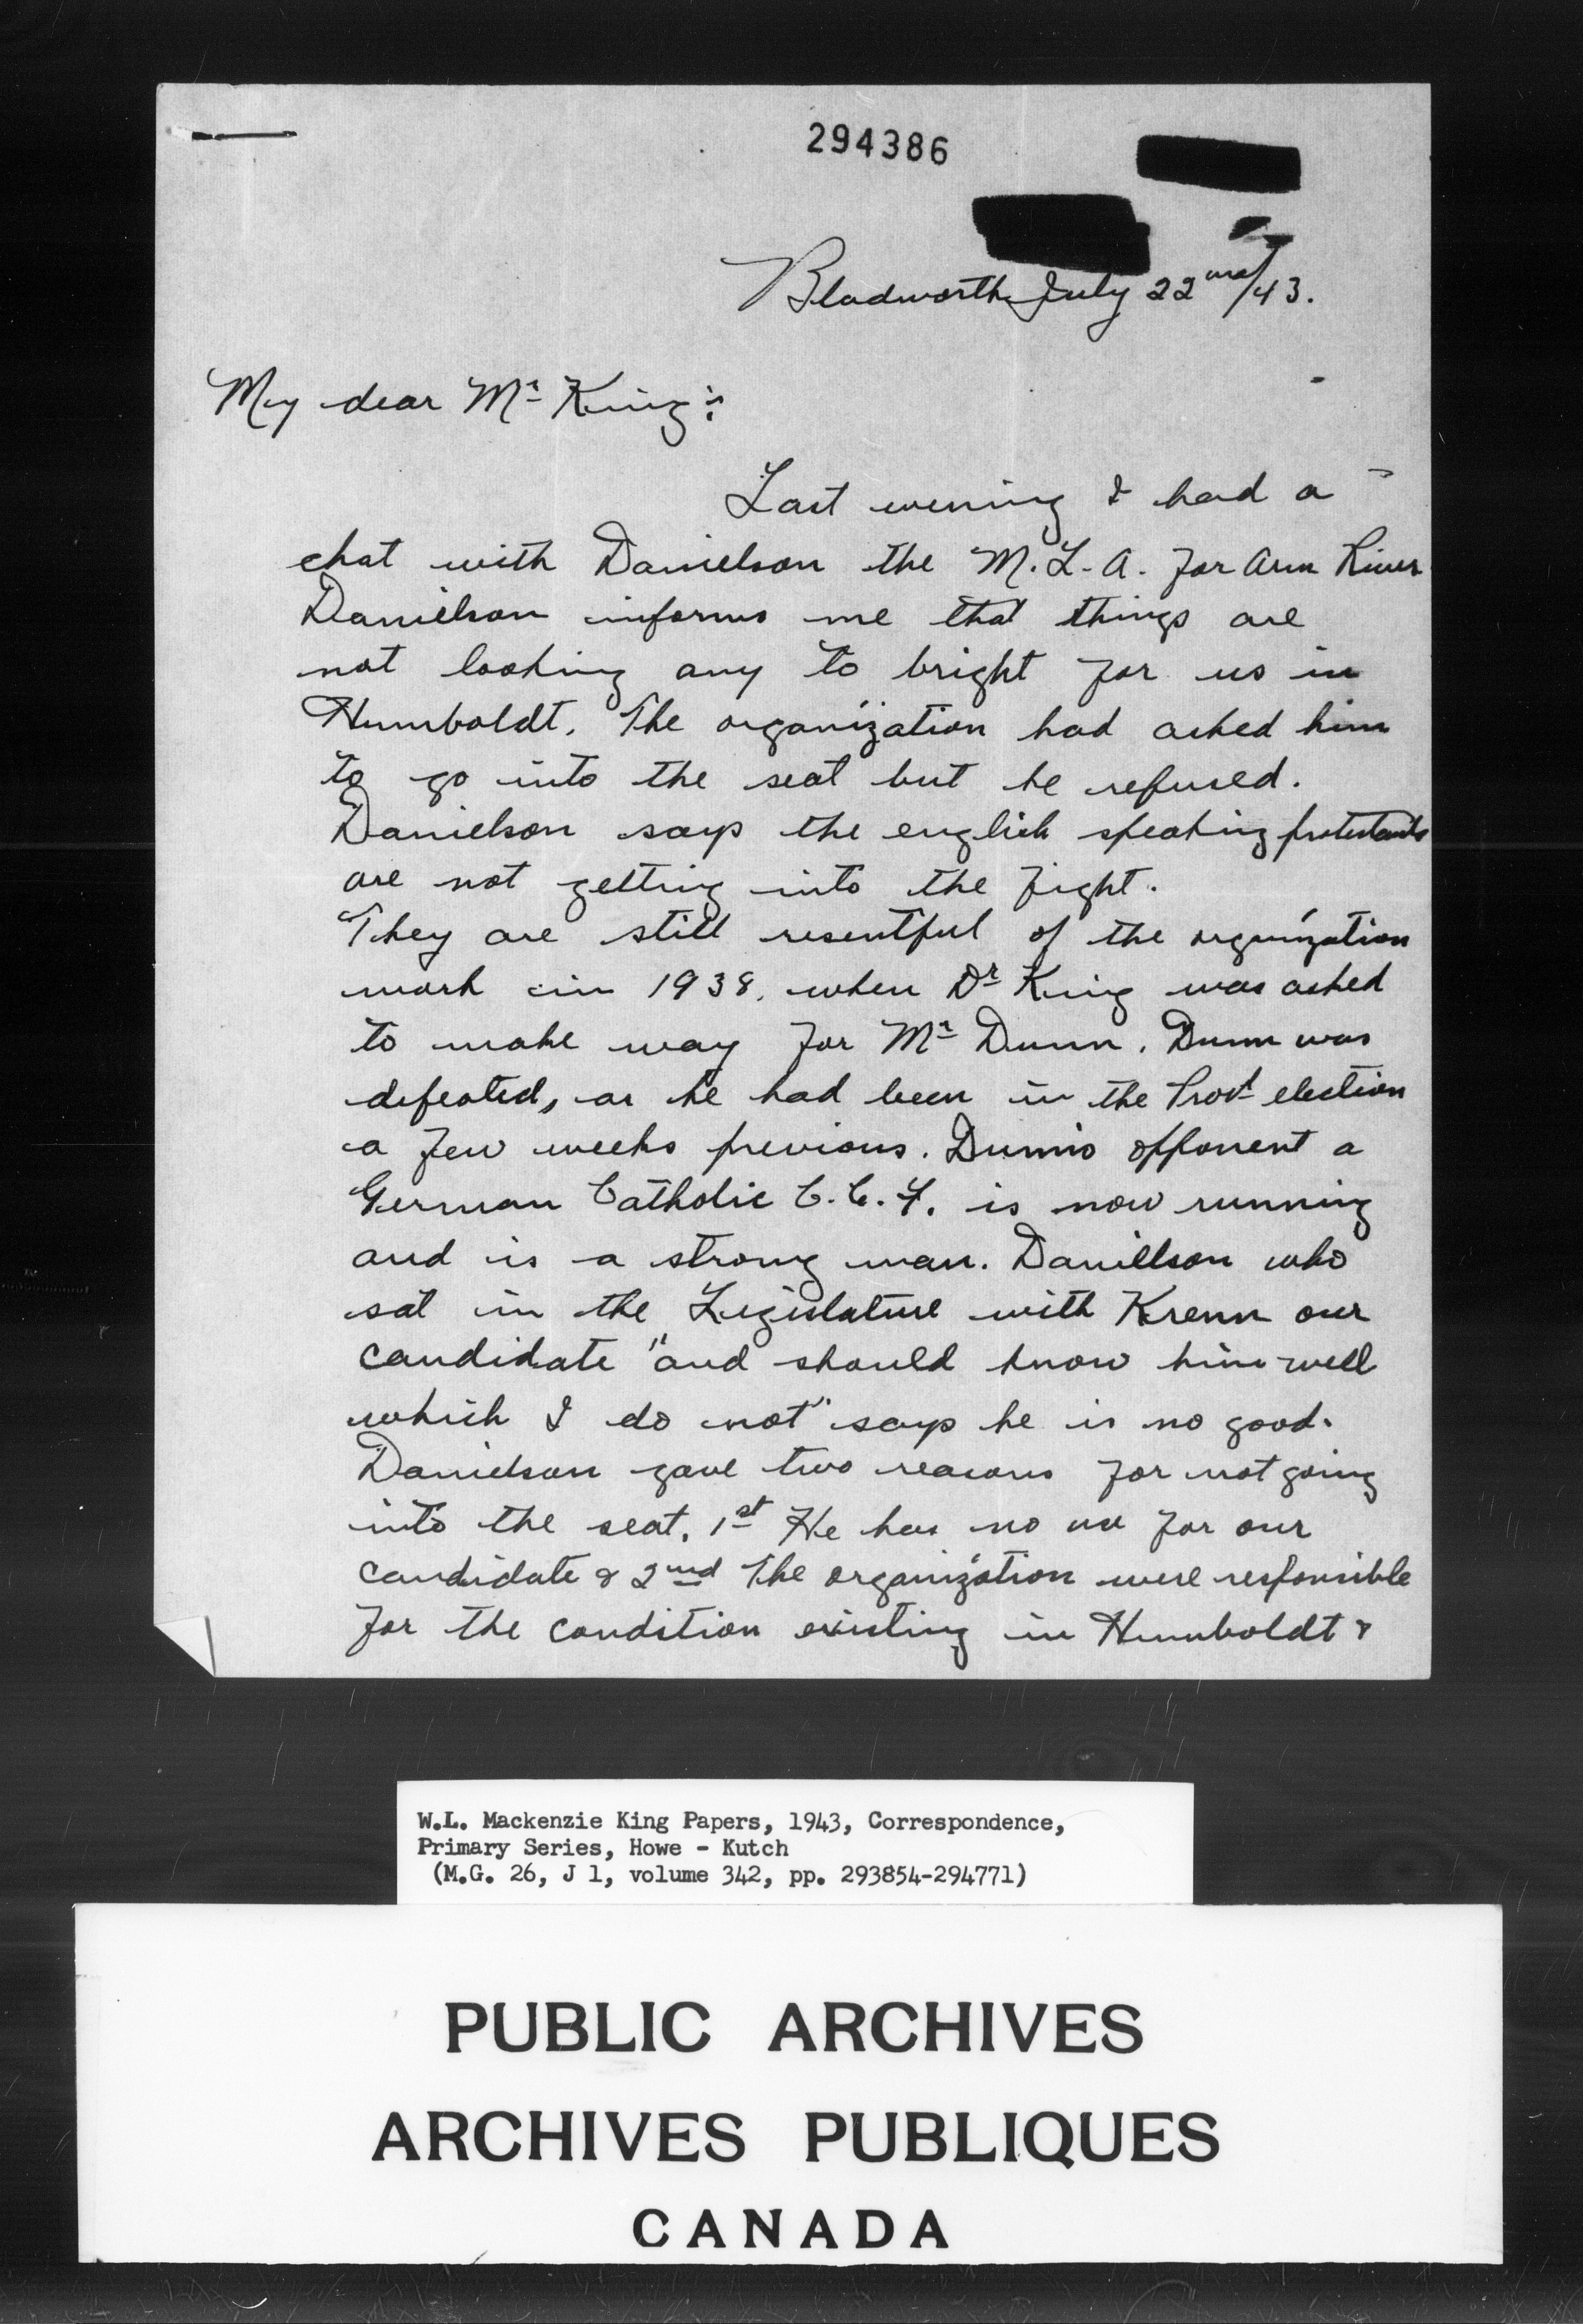 294386
Bladworth July 22nd/43.
My dear Mr King:
Last evening I had a
chat with Danielson the M.L.A. for Arm River
Danielson informs me that things are
not looking any to bright for us in
Humboldt. The organization had asked him
to go into the seat but he refused.
Danielson says the english speaking protestants
are not getting into the fight.
They are still resentful of the organization
work in 1938, when Dr King was asked
to make way for Mr Dunn. Dunn was
defeated, as he had been in the Provl election
a few weeks previous. Dunn's opponent a
German Catholic C.C.F. is now running
and is a strong man. Danielson who
sat in the Legislature with Krenn our
candidate "and should know him well
which I do not" says he is no good.
Danielson gave two reasons for not going
into the seat. 1st He has no use for our
candidate & 2nd The organization were responsible
for the condition existing in Humboldt &
W.L. Mackenzie King Papers, 1943, Correspondence,
Primary Series, Howe - Kutch
(M.G. 26, J 1, volume 342, pp. 293854-294771)
PUBLIC ARCHIVES
ARCHIVES PUBLIQUES
CANADA